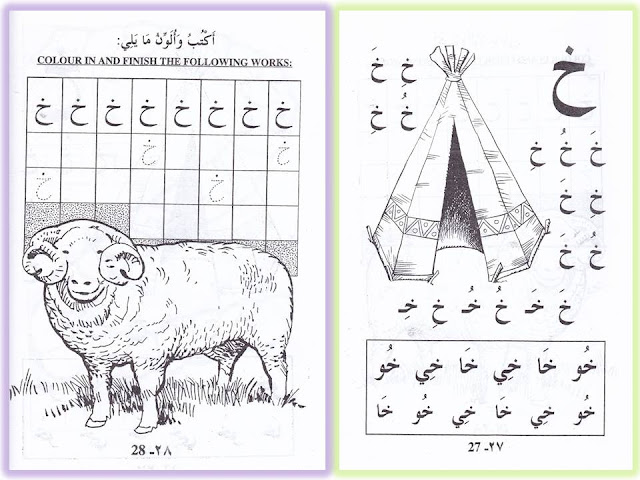 خ
خِ خَ
خُ خِ
خَ خُ خِ
خِ خَ
خُ خَ
خَ خَـ خُ خُـ خِ خِـ
خُو خَا خِي خَا خِي خُو
خُو خِي خَا خِي خُو خَا
27 -٢٧
أَكْتُبُ وَأُلَوِّنُ مَا يَلِي:
COLOUR IN AND FINISH THE FOLLOWING WORKS:
خ خ خ خ خ خ خ خ
خ خ
خ خ
28 -٢٨